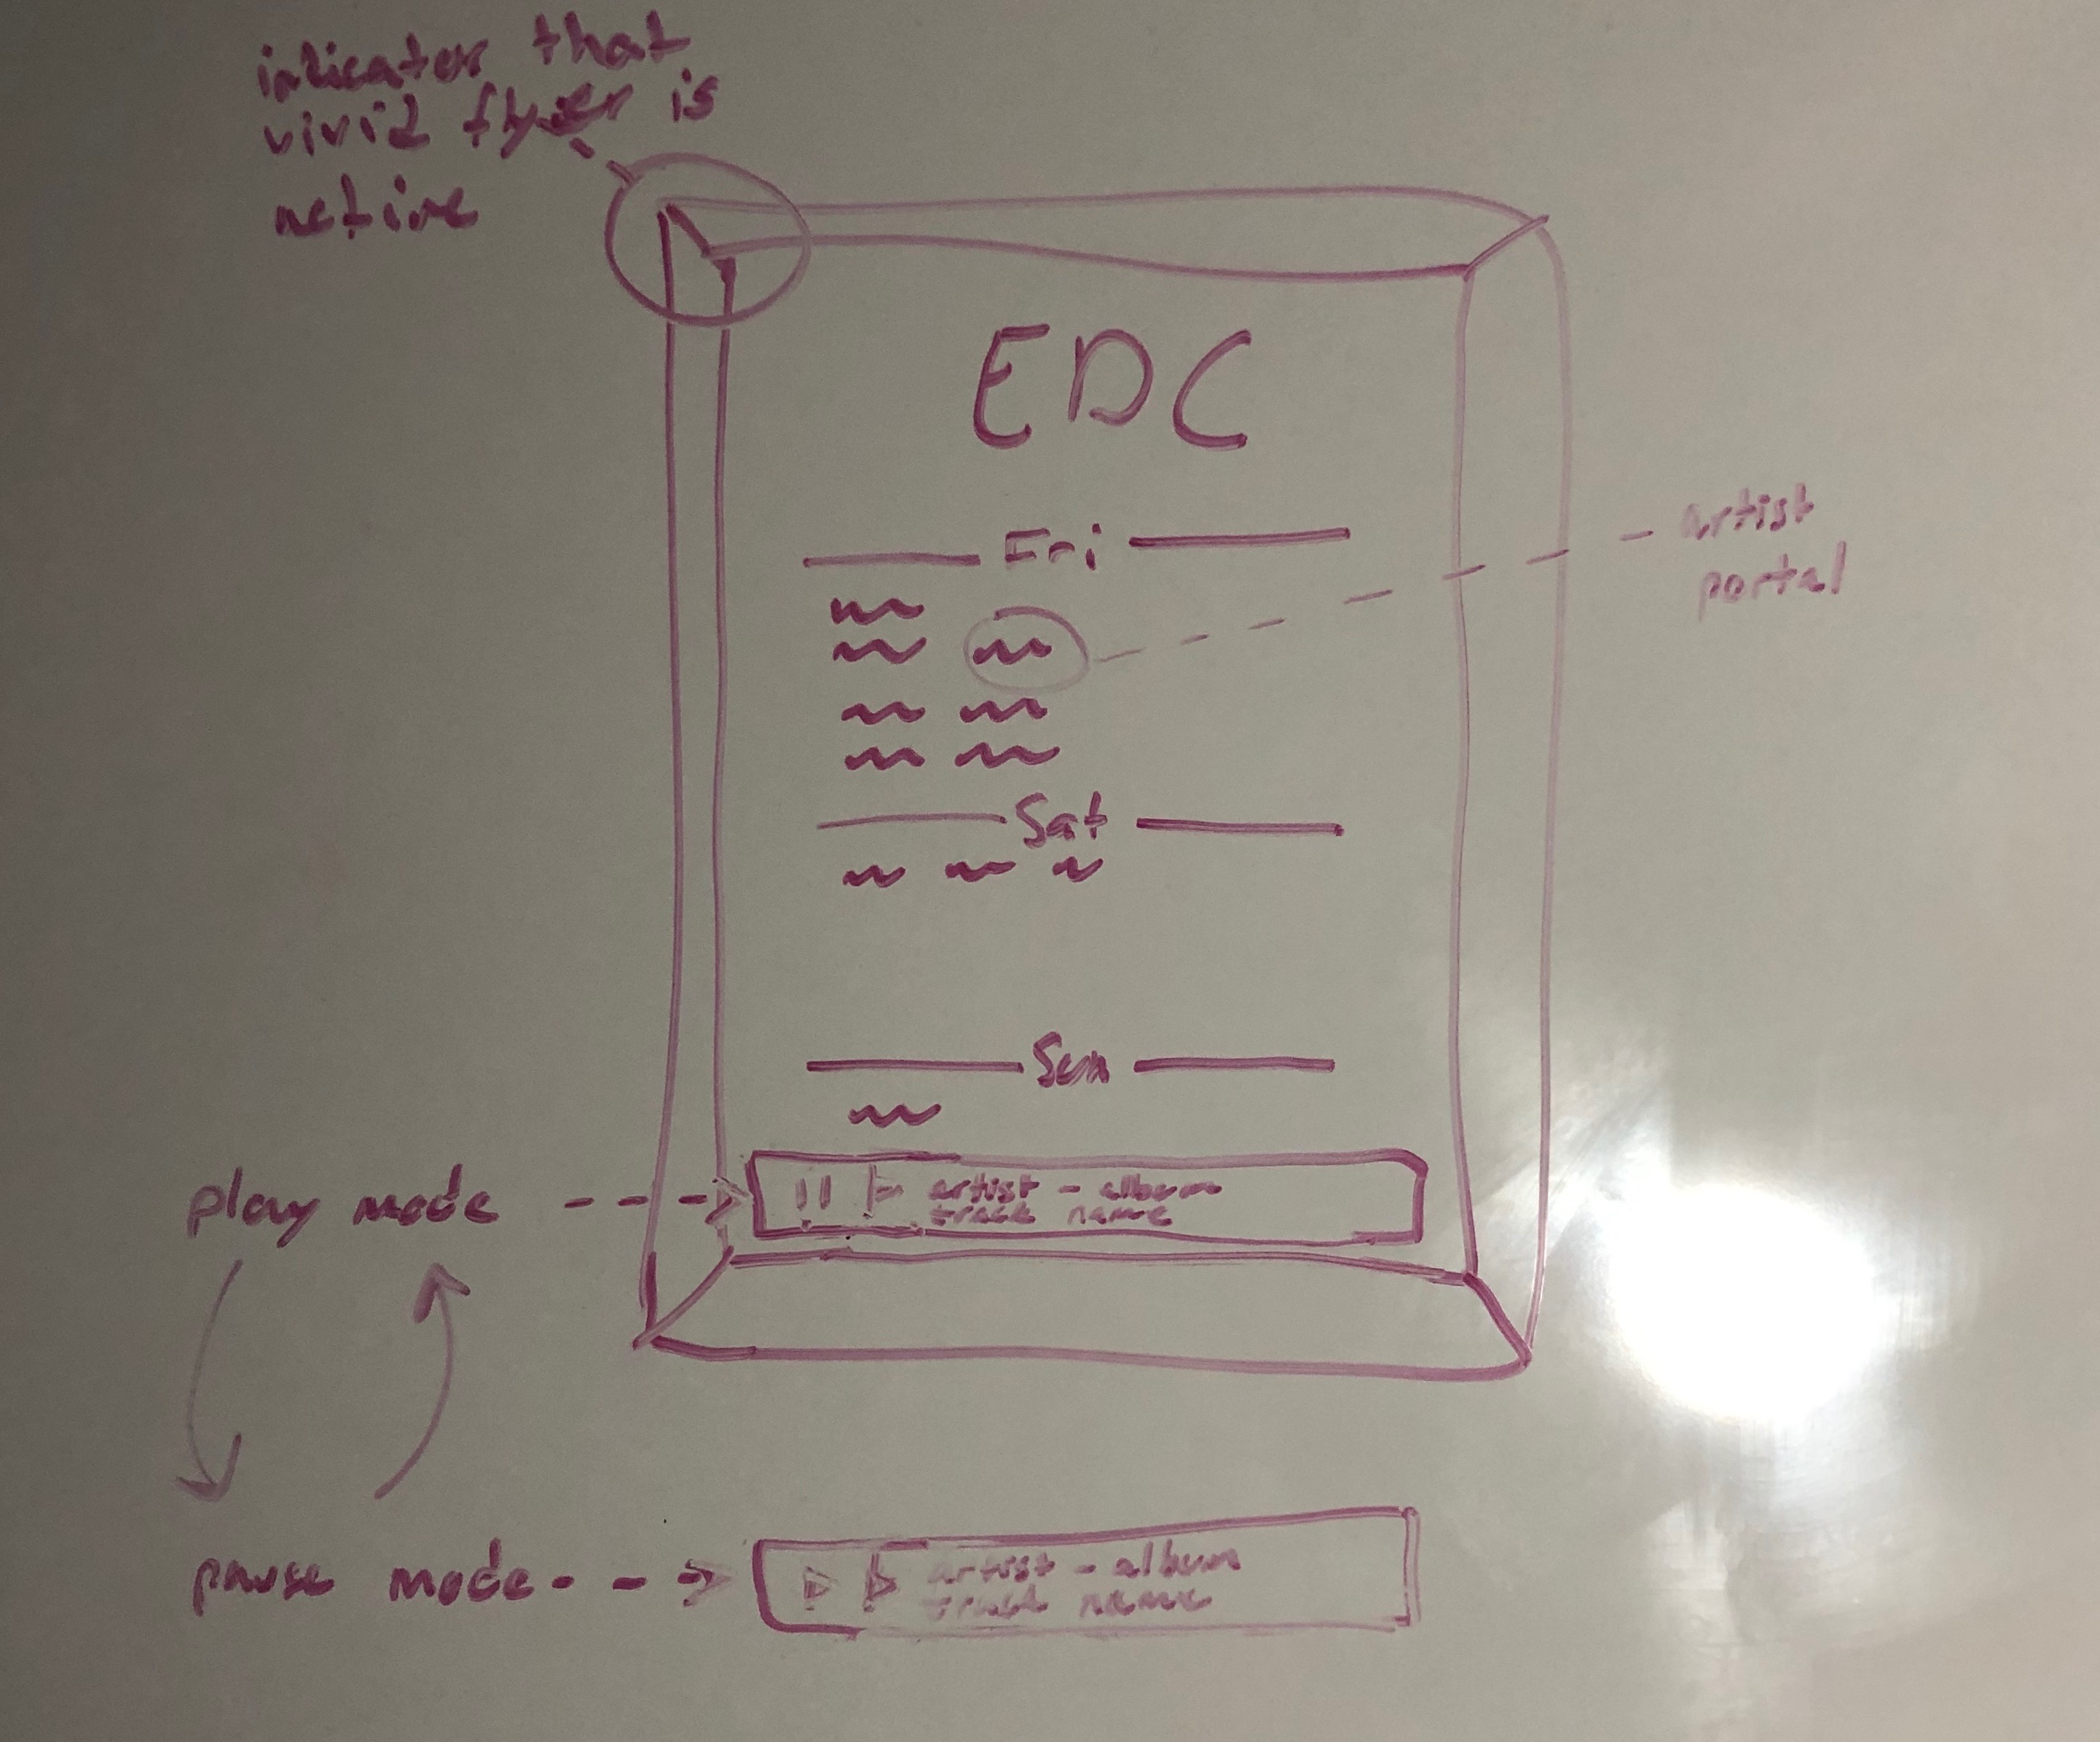 indicator that
vivid flyer is
active
EDC
Fri
artist
portal
Sat
Sun
play mode
artist - album
track name
pause mode
artist - album
track name